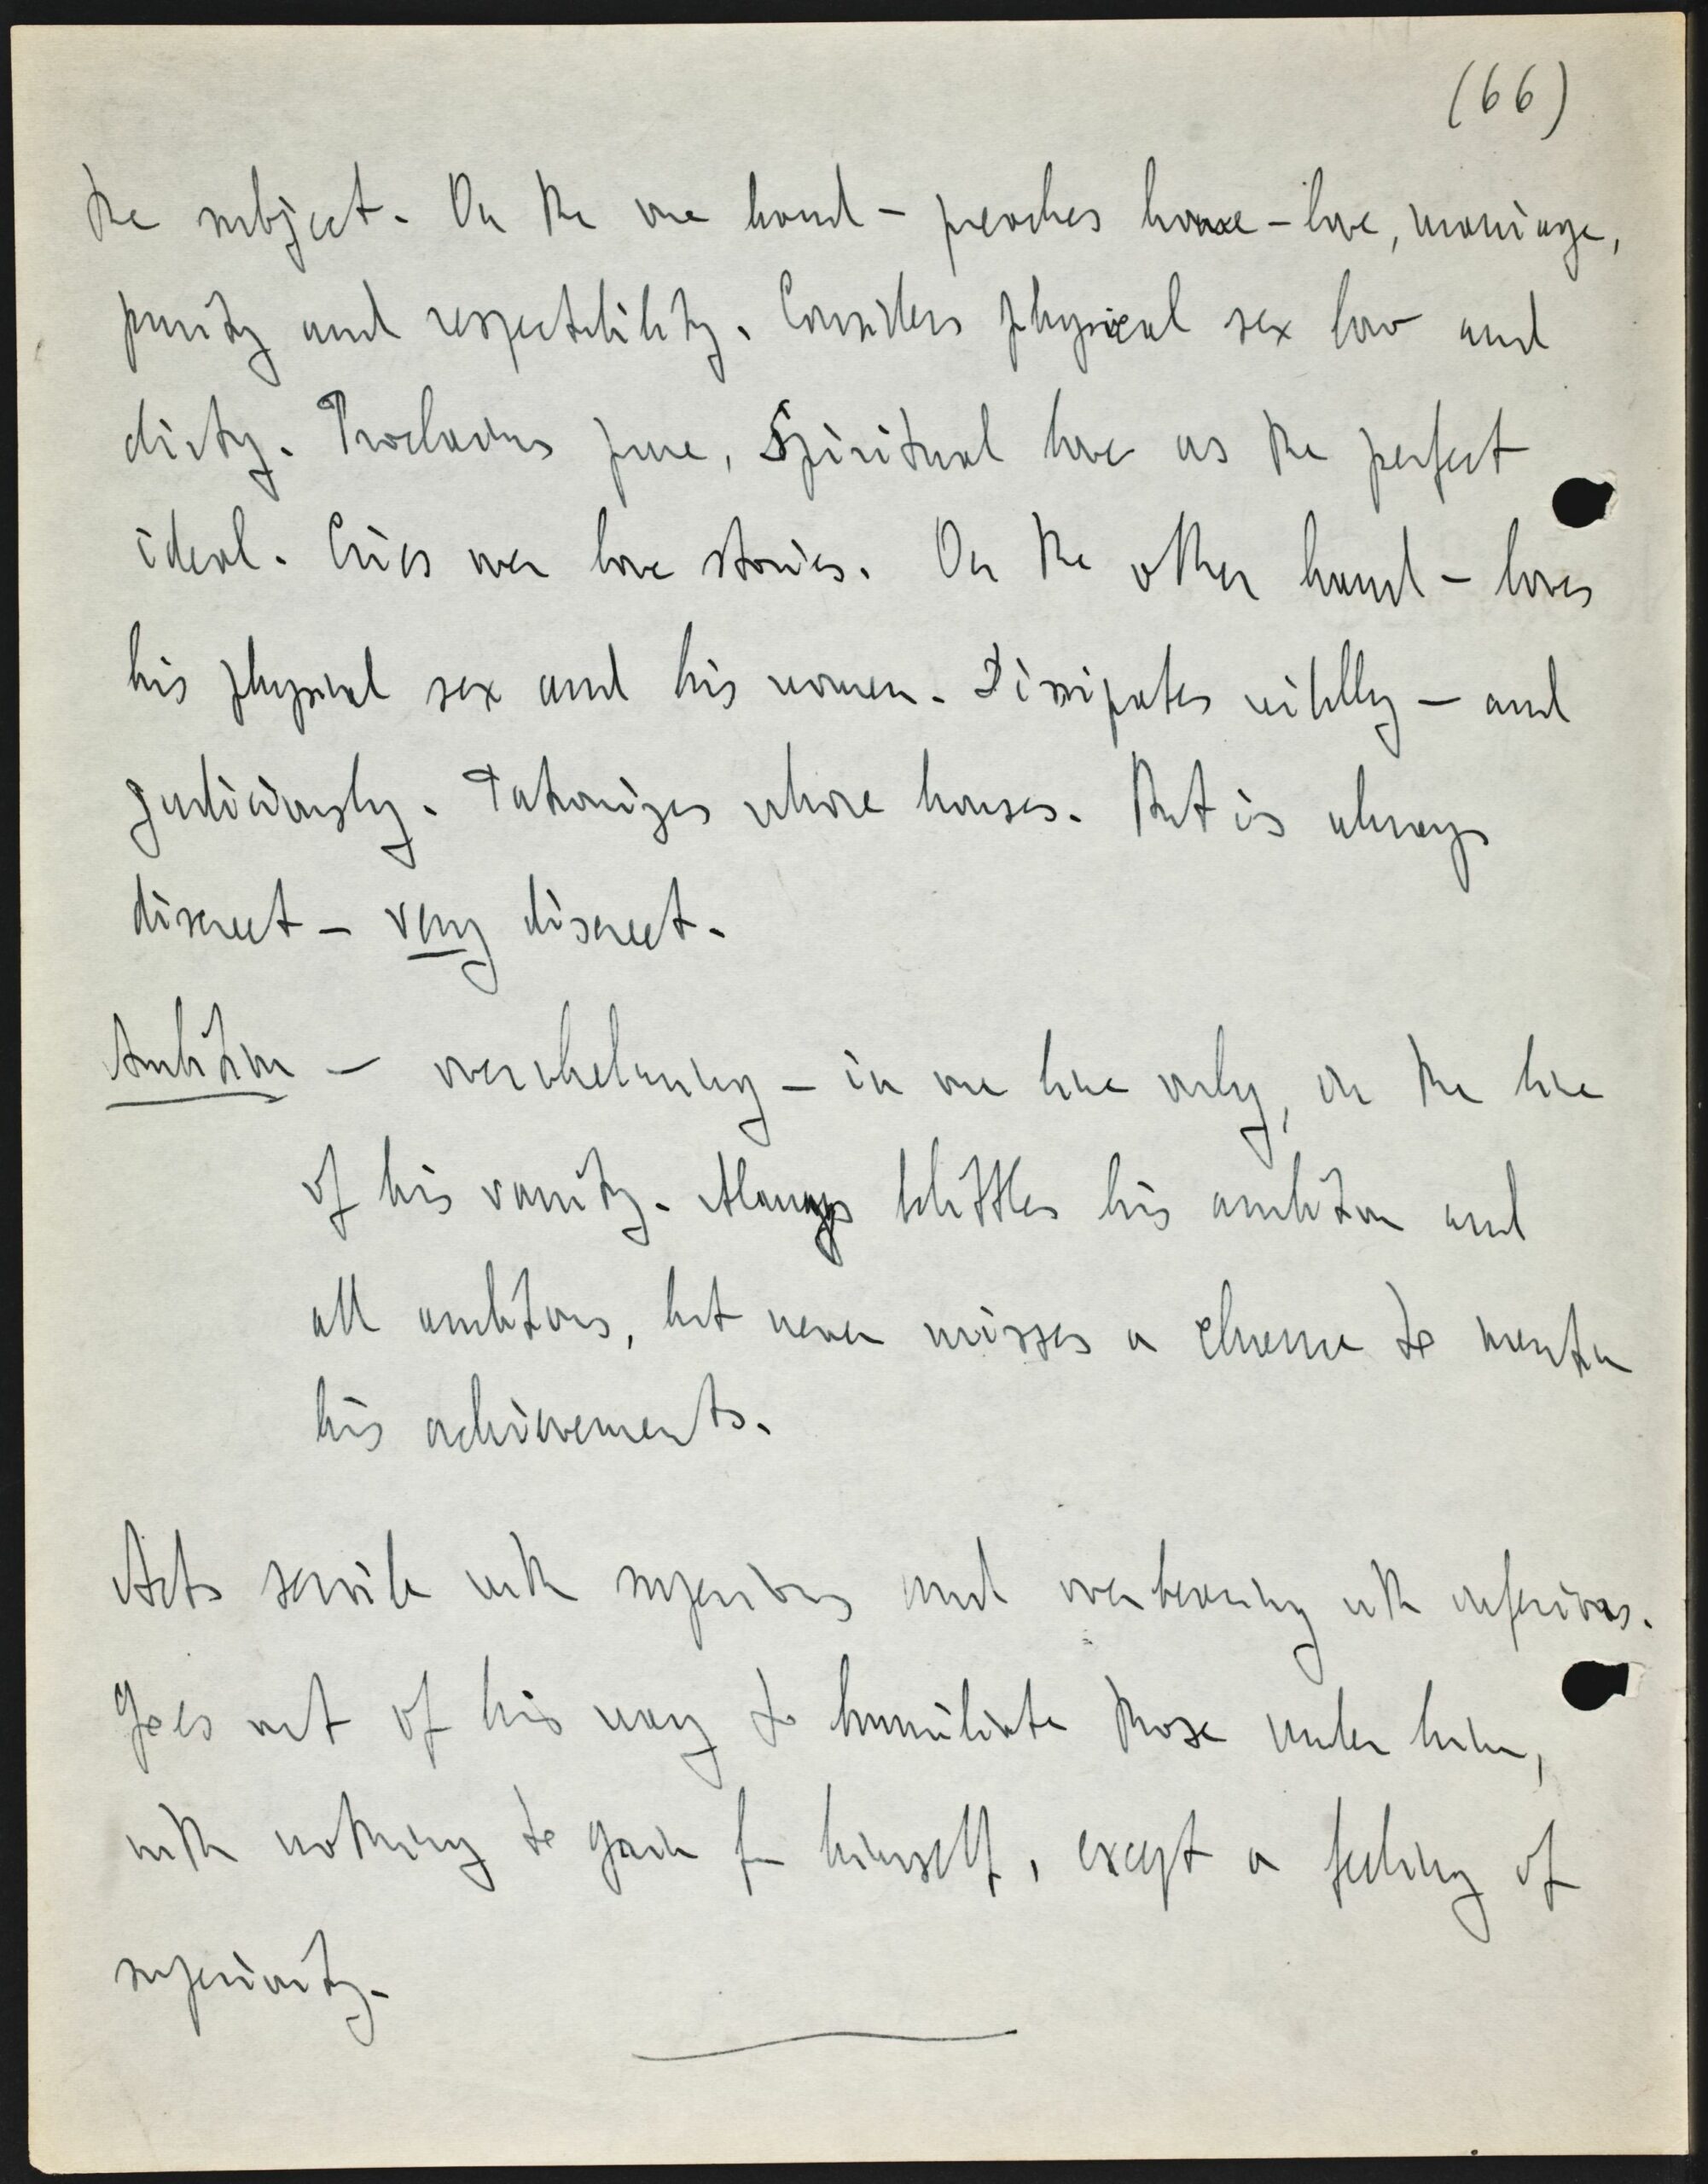 (66)
the subject. On the one hand – preaches home-love, marriage,
purity and respectability. Considers physical sex low and
dirty. Proclaims pure, spiritual love as the perfect
ideal. Cries over love stories. On the other hand – loves
his physical sex and his women. Dissipates wildly – and
judiciously. Patronizes whore houses. But is always
discreet – very discreet.
Ambition – overwhelming – in one line only, in the line
of his vanity. Always belittles his ambition and
all ambitions, but never misses a chance to mention
his achievements.
Acts servile with superiors and overbearing with inferiors.
Goes out of his way to humiliate those under him,
with nothing to gain for himself, except a feeling of
superiority.